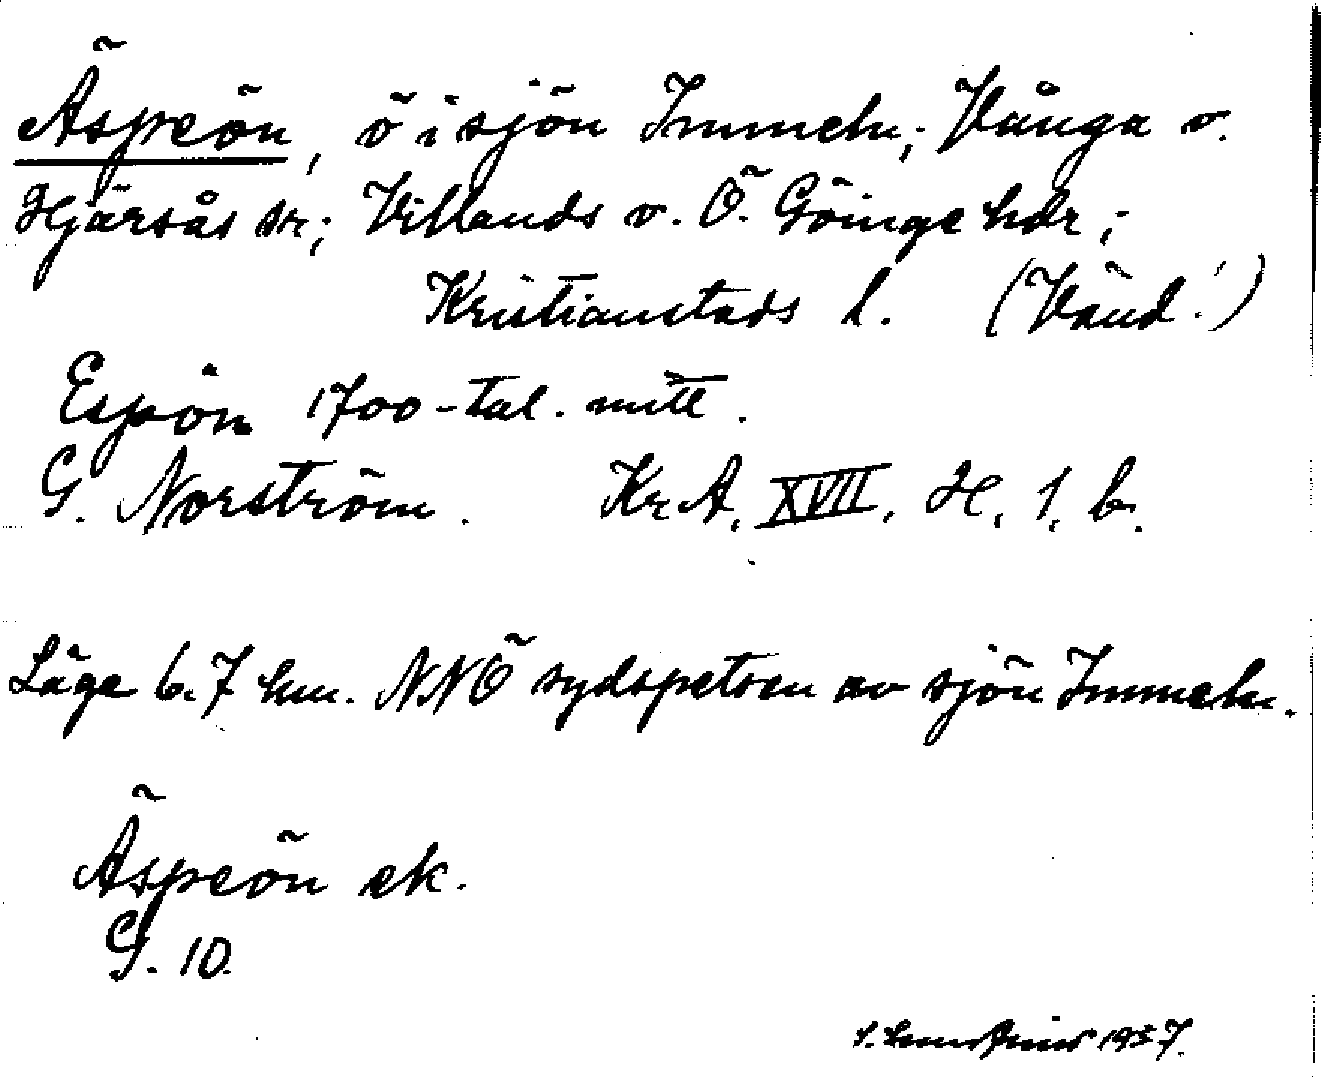 Äspeön, ö i sjön Immeln; Vånga o.
Hjärsås sn; Villands o. Ö. Göinge hdr;
Kristianstads l. (Vänd!)
Espön 1700-tal. mitt.
G. Norström. KrA, XVII, H, 1, b.
Läge 6.7 km. NNÖ sydspetsen av sjön Immeln.
Äspeön ek.
G. 10.
1937.